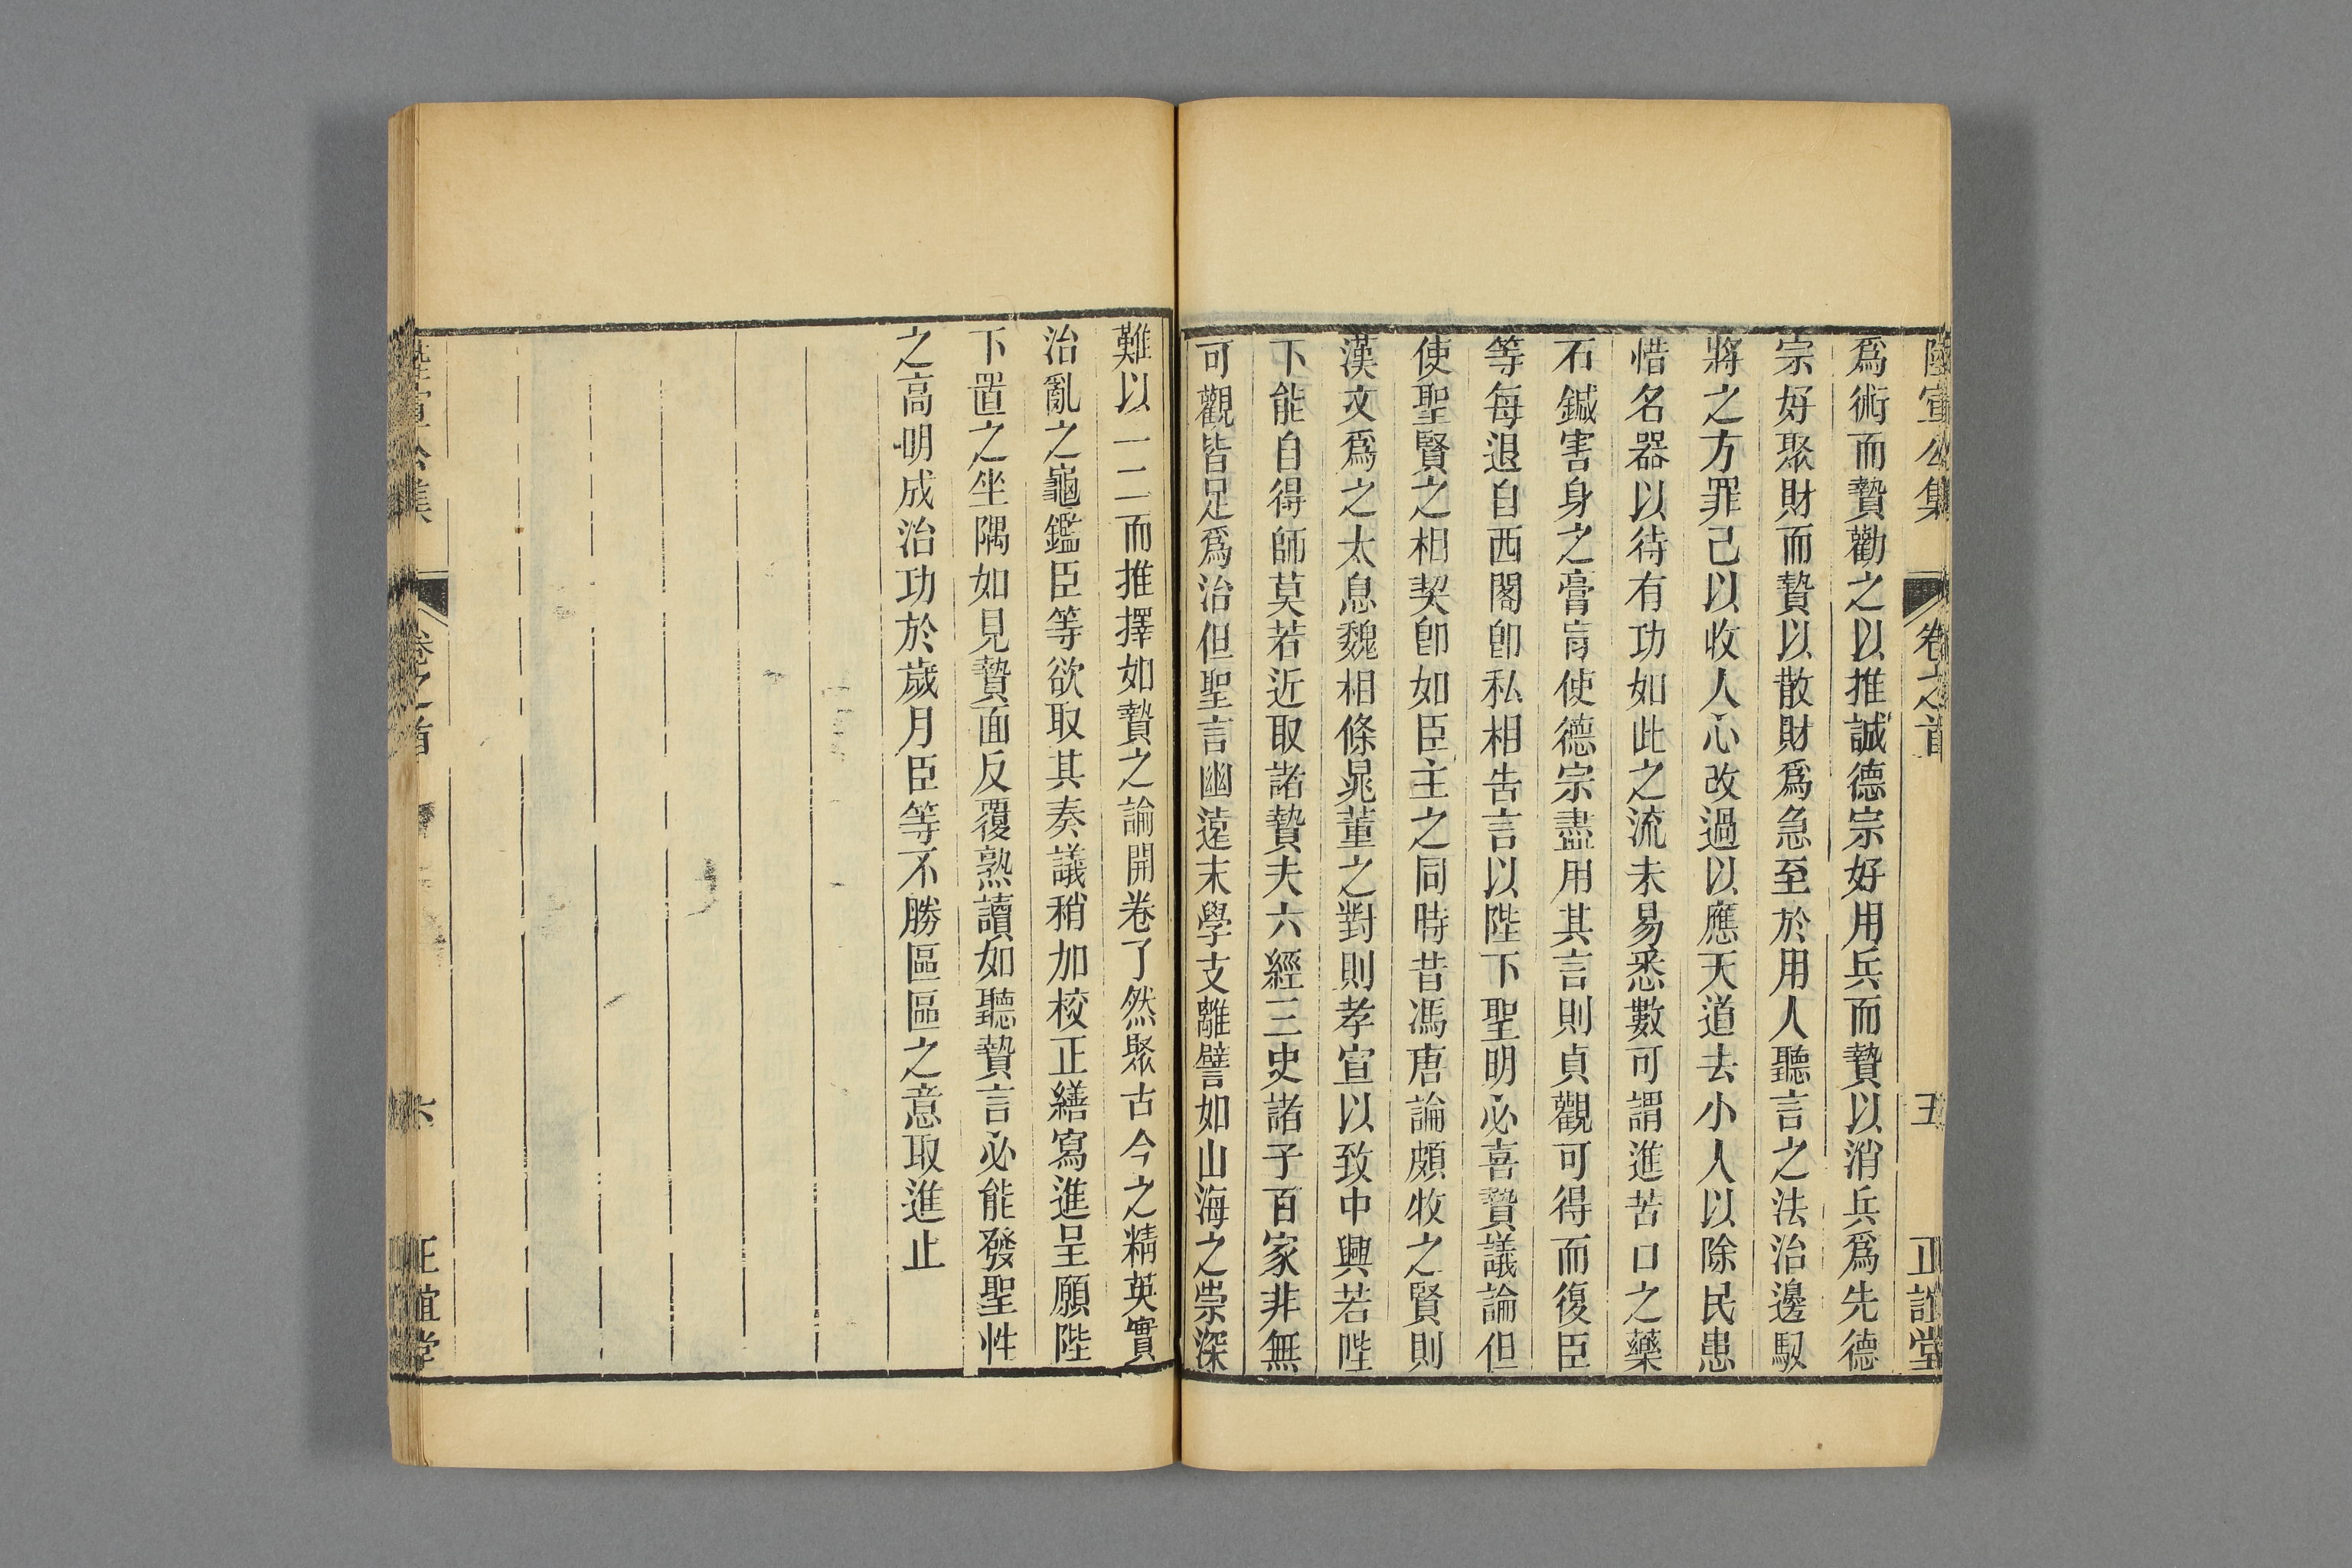 陸宣公集 卷之首 五 正誼堂
爲術而贄勸之以推誠德宗好用兵而贄以消兵爲先德
宗好聚財而贄以散財爲急至於用人聽言之法治邊馭
將之方罪己以收人心改過以應天道去小人以除民患
惜名器以待有功如此之流未易悉數可謂進苦口之藥
石鍼害身之膏肓使德宗盡用其言則貞觀可得而復臣
等每退自西閣卽私相告言以陛下聖明必喜贄議論但
使聖賢之相契卽如臣主之同時昔馮唐論頗牧之賢則
漢文爲之太息魏相條晁董之對則孝宣以致中興若陛
下能自得師莫若近取諸贄夫六經三史諸子百家非無
可觀皆足爲治但聖言幽遠末學支離譬如山海之崇深
難以一二而推擇如贄之論開卷了然聚古今之精英實
治亂之龜鑑臣等欲取其奏議稍加校正繕寫進呈願陛
下置之坐隅如見贄面反覆熟讀如聽贄言必能發聖性
之高明成治功於歲月臣等不勝區區之意取進止
陸宣公集 卷之首 六 正誼堂